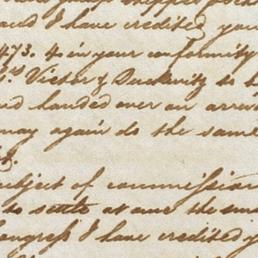 and I have credited your
473. 4 in your conformity
and landed over on arriv
may again do the same
subject of commission
to settle at once the
Congress I have credited y